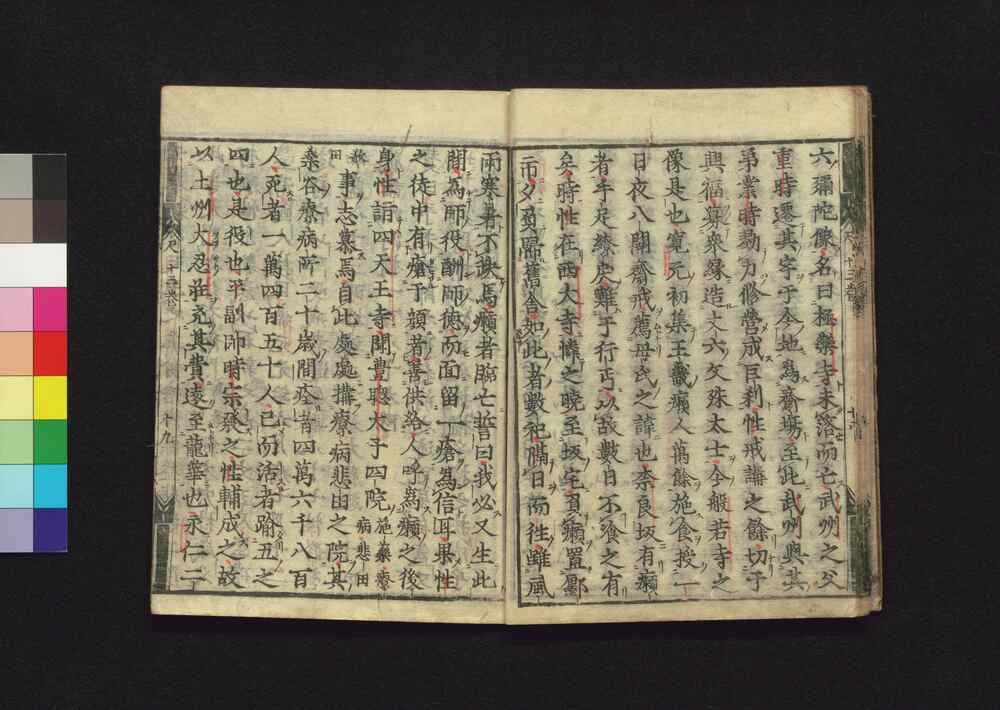 六彌陀像名曰極樂寺未落而亡武州之父
重時遷其字于今地爲齋塲至此武州與其
弟業時勠力修營成巨刹性戒講之餘切于
興福募衆縁造丈六文殊大士今般若寺之
像是也寛元初集王畿癩人萬餘施食授一
日夜八關齋戒薦母氏之諱也奈良坂有癩
者手足繚戾難于行丐以故數日不飡之有
矣時性在西大寺憐之曉至坂宅負癩置鄽
市夕負歸舊舍如此者數祀隔日而往雖風
雨寒暑不缺焉癩者臨亡誓曰我必又生此
間爲師役酬師德而面留一瘡爲信耳果性
之徒中有瘡于顔者善供給人呼爲癩之後
身性謂四天王寺聞豐聰太子四院施藥療病悲田
敬田事志慕焉自此處處搆療病悲田之院其
桑谷療病所二十歲間痊者四萬六千八百
人死者一萬四百五十人已而活者踰五之
四也是役也平副帥時宗飛之性輔成之故
以土州大忍莊充其費遠至龍華也永仁二
十九